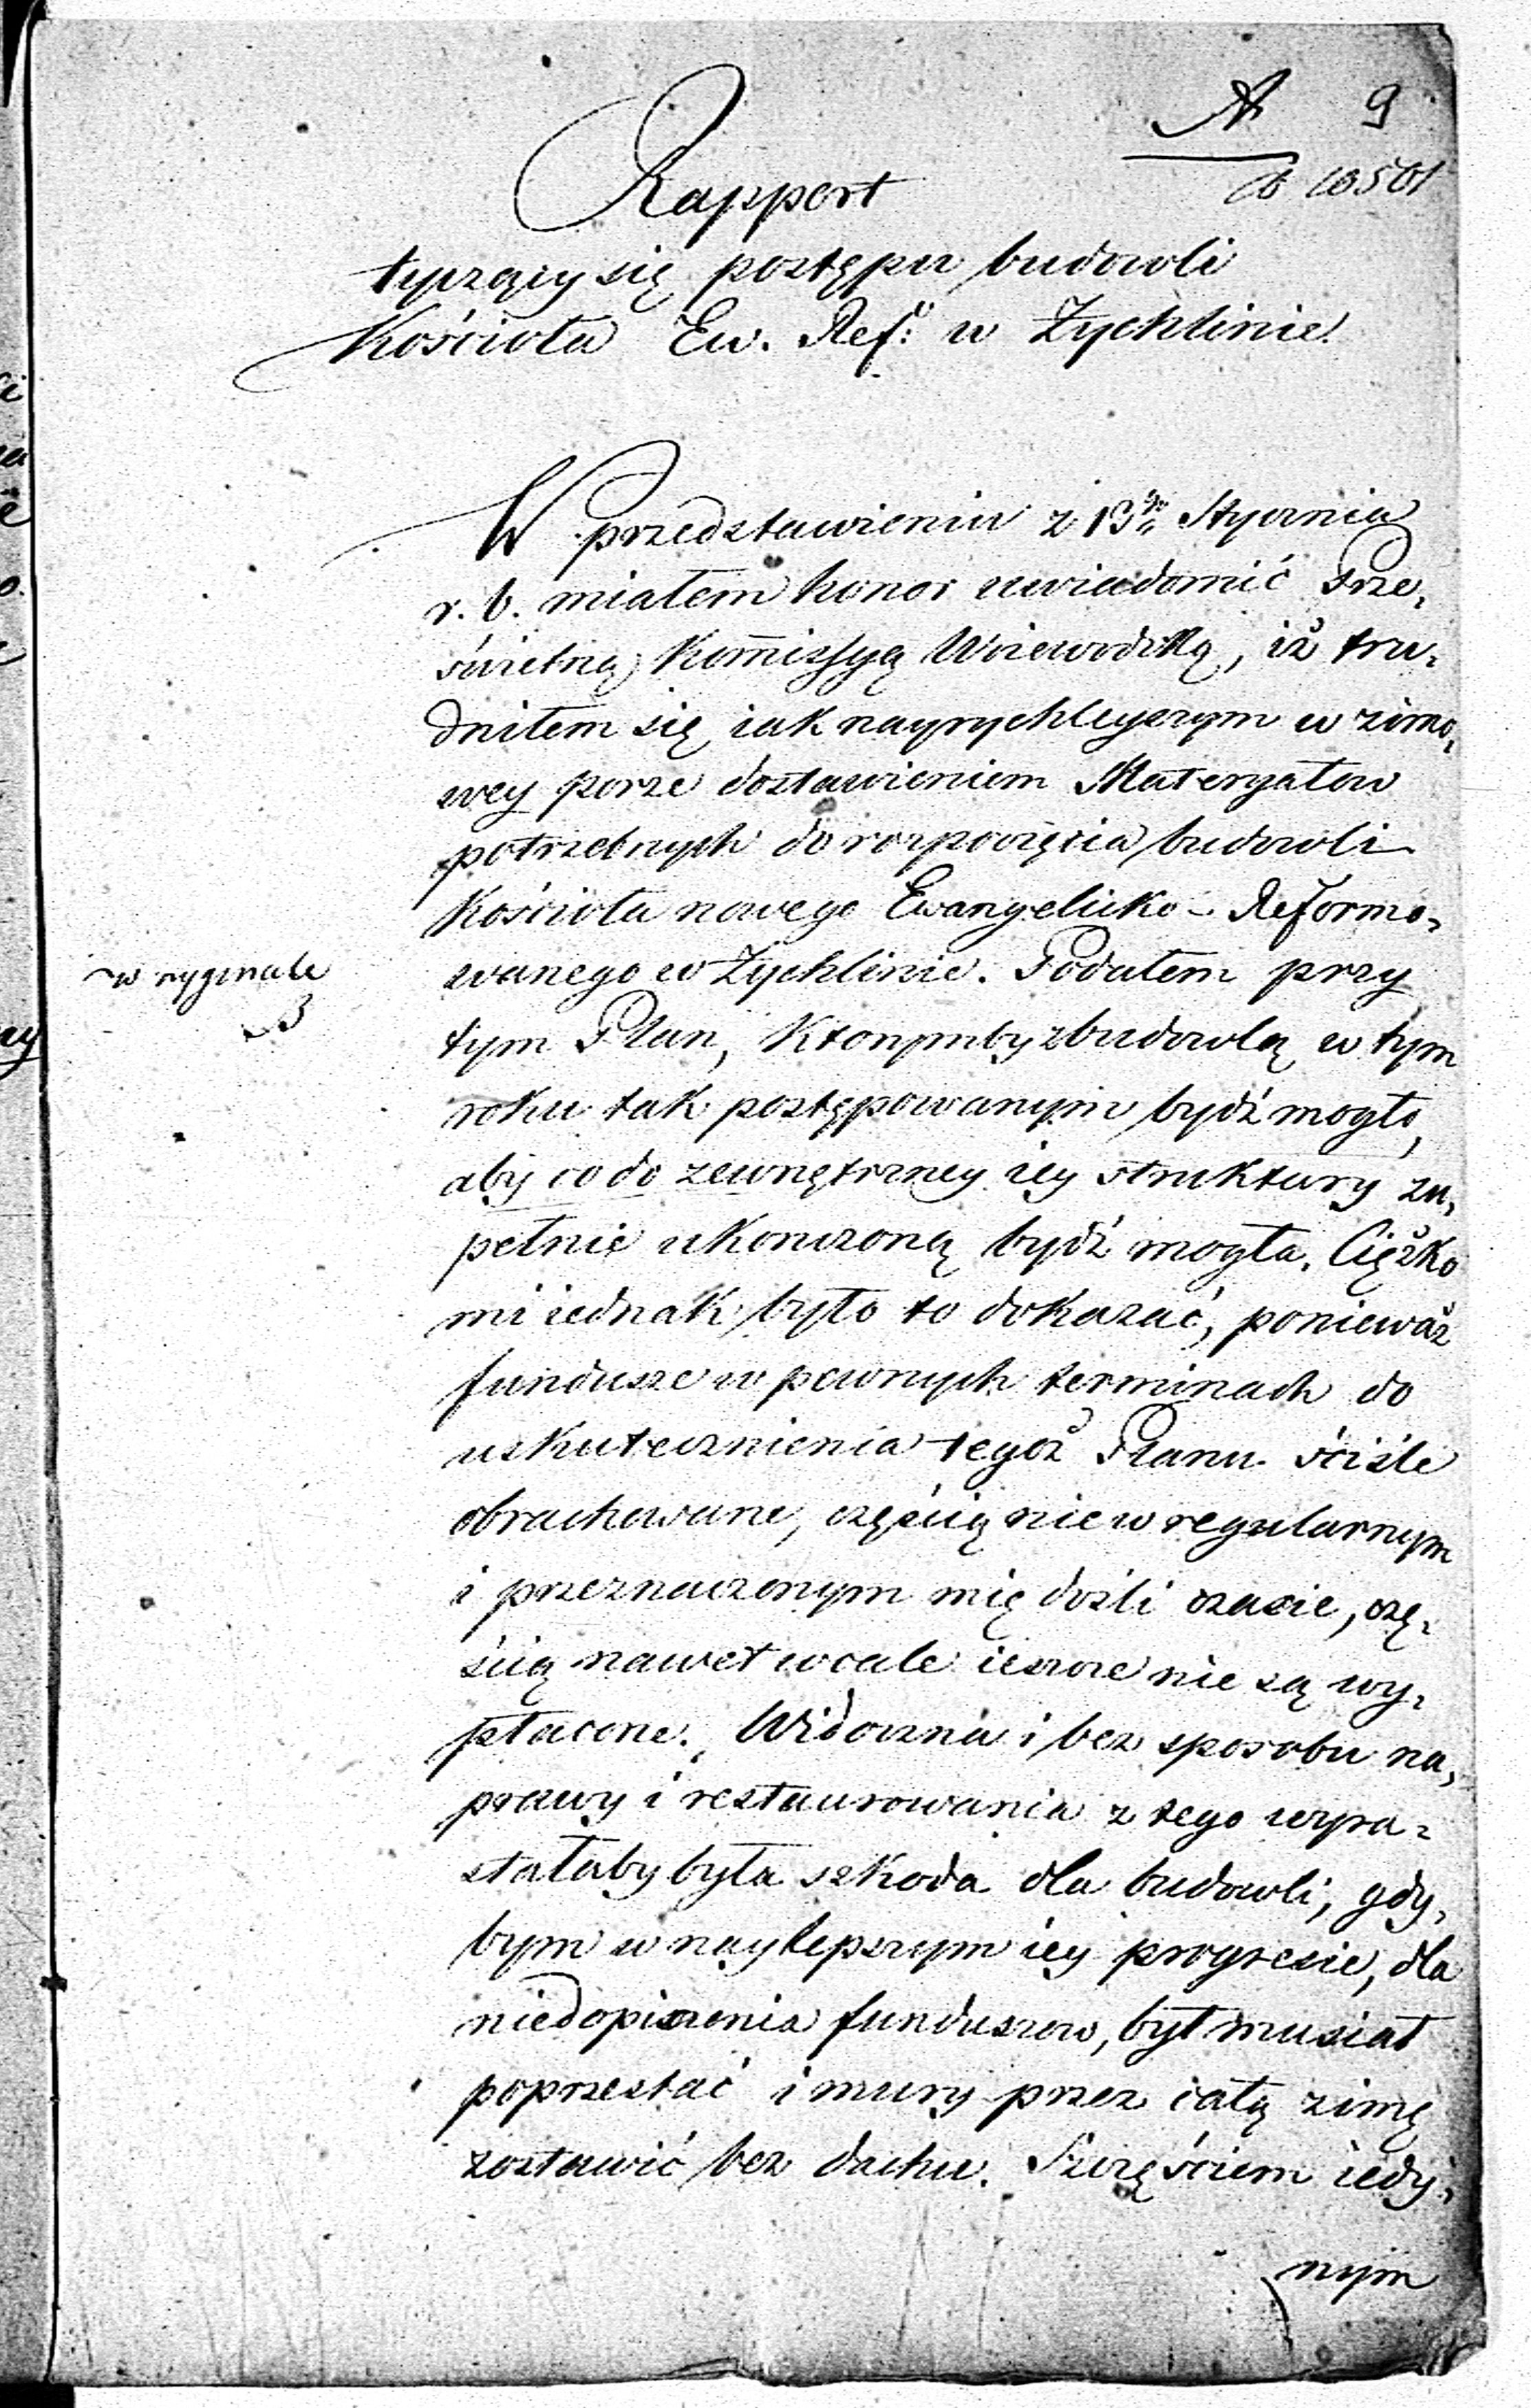 A 9
10501
Rapport
tyczący się postępu budowli
Kościoła Ew. Ref: w Żychlinie.
W przedstawieniu z 13go Stycznia
r. b. miałem honor uwiadomić Prze„
świetną Kom̄issyą Woiewodzką, iż tru„
dniłem się iak nayrychleyszym w zimo„
wey porze dostawieniem Materyałow
potrzebnych do rozpoczęcia budowli
Kościoła nowego Ewangelicko - Reformo„
wanego w Żychlinie. Podałem przy
w ryginale
B
tym Plan, ktorymby z budowlą w tym
roku tak postępowanym bydź mogło,
aby co do zewnętrzney iey struktury zu„
pełnie ukonczoną bydź mogła. Ciężko
mi iednak było to dokazać, ponieważ
fundusze w pewnych terminach do
uskutecznienia tegoż Planu ściśle
obrachowane, częścią nie w regularnym
i przeznaczonym mię doszli czasie, czę„
ścią nawet wcale ieszcze nie są wy„
płacone. Widoczna i bez sposobu na„
prawy i restaurowania z tego wyra„
stałaby była szkoda dla budowli, gdy„
bym w naylepszym iey progresie, dla
niedopiszenia funduszow, był musiał
poprzestać i mury przez całą zimę
zostawić bez dachu. Szczęściem iedy„
nym